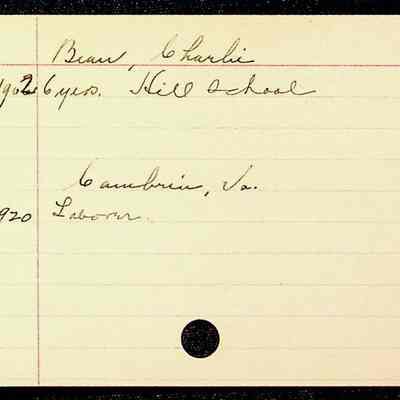 Bean, Charlie
1902 6 yrs. Hill School
Cambria, Va.
1920 Laborer